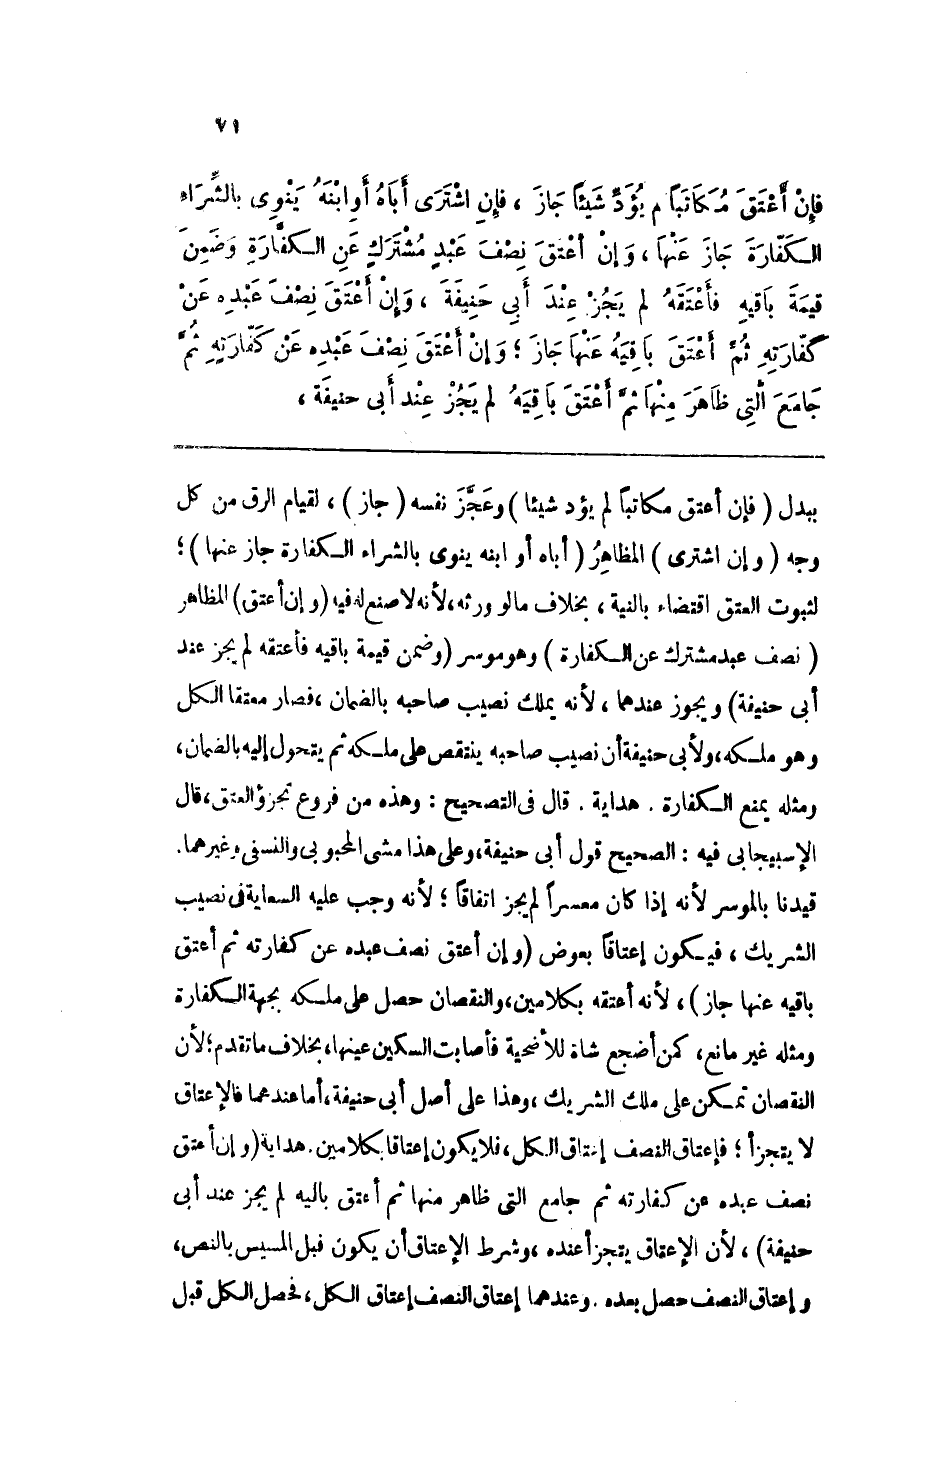 ٧١
فإِنْ أَعْتَقَ مُكَاتَبًا لم يُؤَدِّ شَيْئًا جَازَ ، فإِنِ اشْتَرَى أَبَاهُ أَوِ ابْنَهُ يَنْوِى بالشِّرَاءِ
الـكَفَّارَةَ جَازَ عَنْهَا ، وَإِنْ أعْتَقَ نِصْفَ عَبْدٍ مُشْتَرَكٍ عَنِ الـكفَّارَةِ وَضَمِنَ
قيمَةَ بَاقيهِ فأَعْتَقَهُ لم يَجُزْ عِنْدَ أَبِى حَنِيفَةَ ، وَإِنْ أَعْتَقَ نِصْفَ عَبْدِهِ عَنْ
كَفَّارَتِهِ ثُمَّ أَعْتَقَ بَاقِيَهُ عَنْهَا جَازَ ؛ وَإِنْ أَعْتَقَ نِصْفَ عَبْدِهِ عَنْ كَفَّارَتِهِ ثُمَّ
جَامَعَ الَّتِى ظَاهَرَ مِنْهَا ثمَّ أَعْتَقَ بَاقِيَهُ لم يَجُزْ عِنْد أَبى حنيفَة ،
ببدل ( فإن أعتق مكاتباً لم يؤد شيئا ) وعَجَّزَ نفسه ( جاز ) ، لقيام الرق من كل
وجه ( و إن اشترى ) المظاهِرُ ( أباه أو ابنه ينوى بالشراء الـكفارة جاز عنها ) ؛
لثبوت العتق اقتضاء بالنية ، بخلاف مالو ورثه،لأنه لاصنع له فيه (و إن أعتق) المظاهر
( نصف عبدمشترك عن الـكفارة ) وهو موسر (وضمن قيمة باقيه فأعتقه لم يجز عند
أبى حنيفة) و يجوز عندهما ، لأنه يملك نصيب صاحبه بالضمان ،فصار معتقا الـكل
وهو ملـكه،ولأبى حنيفة أن نصيب صاحبه ينتقص على ملـكه ثم يتحول إليه بالضمان،
ومثله يمنع الـكفارة . هداية . قال فى التصحيح : وهذه من فروع تجزؤ العتق،قال
الإسبيجابى فيه : الصحيح قول أبى حنيفة،وعلى هذا مشى المحبوبى والنسفى وغيرهما.
قيدنا بالموسر لأنه إذا كان معسراً لم يجز اتفاقاً ؛ لأنه وجب عليه السعاية فى نصيب
الشريك ، فيـكون إعتاقاً بعوض (و إن أعتق نصف عبده عن كفارته ثم أعتق
باقيه عنها جاز ) ، لأنه أعتقه بكلامين،والنقصان حصل على ملـكه بجهة الـكفارة
ومثله غير مانع، كمن أضجع شاة للأضحية فأصابت السكين عينها،بخلاف ماتقدم؛لأن
النقصان تمـكن على ملك الشريك ،وهذا على أصل أبى حنيفة،أما عندهما فالإعتاق
لا يتجزأ ؛ فإعتاق النصف إعتاق الـكل ،فلايكون إعتاقا بكلامين . هداية(و إن أعتق
نصف عبده عن كفارته ثم جامع التى ظاهر منها ثم أعتق باقيه لم يجز عند أبى
حنيفة) ، لأن الإعتاق يتجزأ عنده ،وشرط الإعتاق أن يكون قبل المسيس بالنص،
و إعتاق النصف حصل بعده . وعندهما إعتاق النصف إعتاق الـكل ، فحصل الـكل قبل